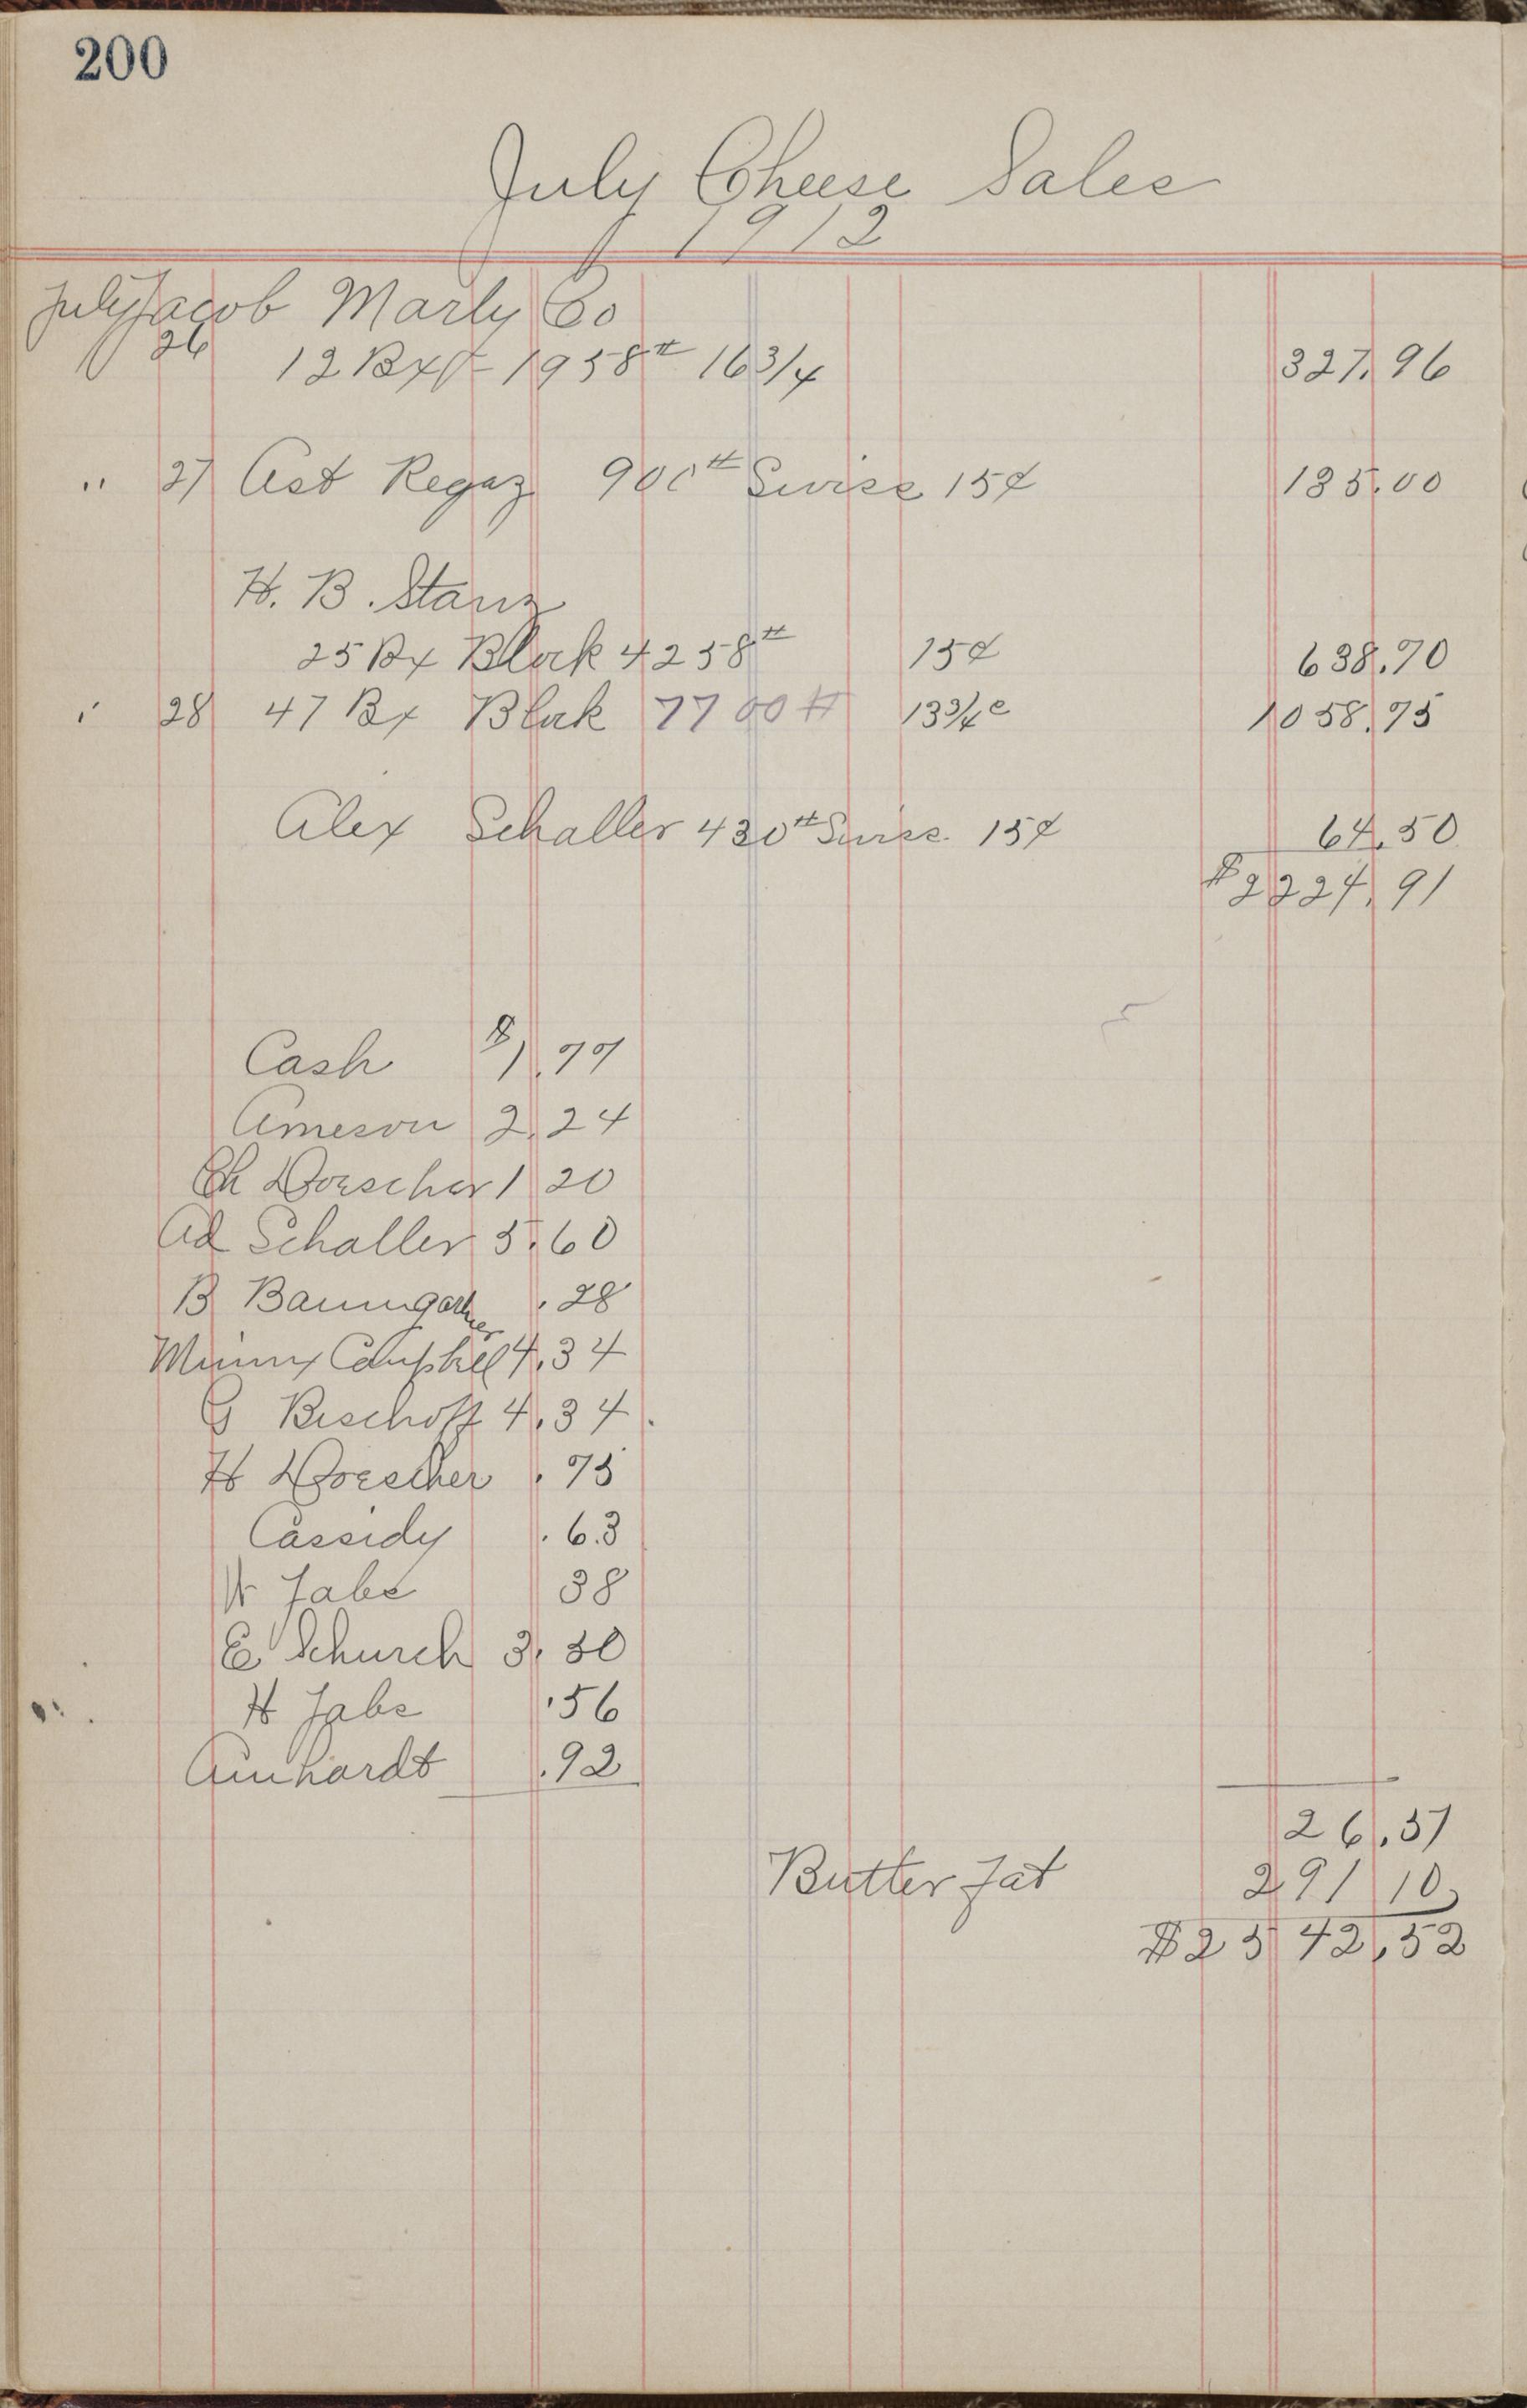 200
July Cheese Sales
1912
July Jacob Marly Co
26 12 Bxs 1958# 16 3/4 327.96
" 27 Ast Regaz 900# Swiss 15¢ 135.00
H. B. Stanz
25 Bx Block 4258# 15¢ 638.70
" 28 47 Bx Block 7700# 13 3/4 c 1058.75
Alex Schaller 430# Swiss 15¢ 64.50
$2224.91
Cash $1.77
Ameson 2.24
Ch Doescher 1 20
Ad Schaller 5.60
B Baumgartner .28
Minny Campbell 4.34
G Bischoff 4.34
H Doescher .75
Cassidy .63
W Jabs 38
E Schurch 3.50
H Jabs .56
Amhardt .92
26.51
Butter fat 291 10
$2542.52